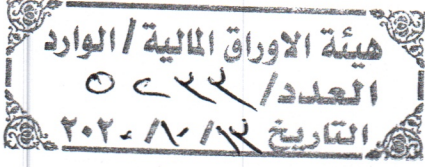 هيئة الاوراق المالية / الوارد
العدد/
التاريخ ١٣ / ١٠ / ٢٠٢٠